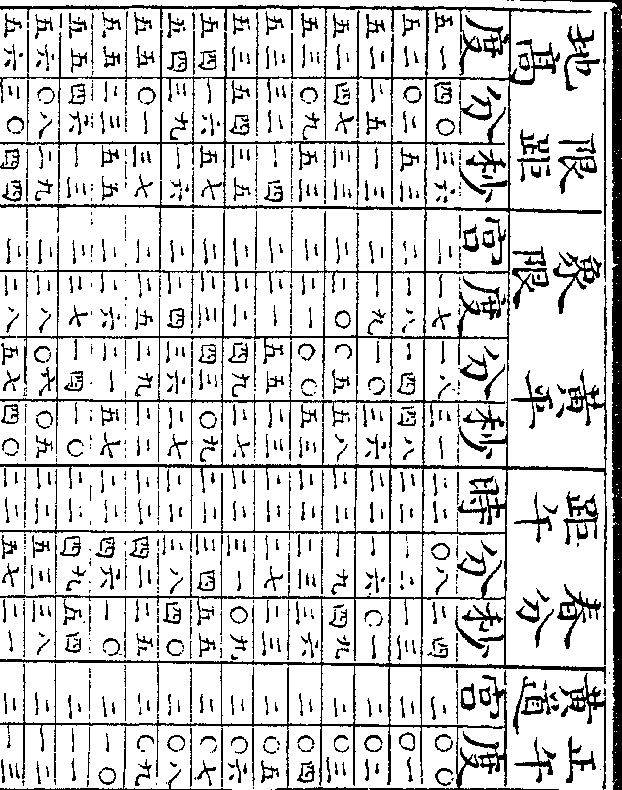 限距地高　黃平象限　春分距午　正午黃道
度分秒　宮度分秒　時分秒　宮度
五一　四〇　三六　二　一七　一八　三一　二二　〇八　二四　二　〇〇
五二　〇二　五三　二　一八　一四　四八　二二　一二　一三　二　〇一
五二　二五　一三　二　一九　一〇　三六　二二　一六　〇一　二　〇二
五二　四七　三三　二　二〇　〇五　五八　二二　一九　四九　二　〇三
五三　〇九　五三　二　二一　〇〇　五三　二二　二三　三六　二　〇四
五三　三二　一四　二　二一　五五　二三　二二　二七　二三　二　〇五
五三　五四　三五　二　二二　四九　二七　二二　三一　〇九　二　〇六
五四　一六　五七　二　二三　四三　〇九　二二　三四　五五　二　〇七
五四　三九　一六　二　二四　三六　二七　二二　三八　四〇　二　〇八
五五　〇一　三七　二　二五　二九　二二　二二　四二　二五　二　〇九
五五　二三　五五　二　二六　二一　五七　二二　四六　一〇　二　一〇
五五　四六　一三　二　二七　一四　一〇　二二　四九　五四　二　一一
五六　〇八　二九　二　二八　〇六　〇五　二二　五三　三八　二　一二
五六　三〇　四四　二　二八　五七　四〇　二二　五七　二一　二　一三